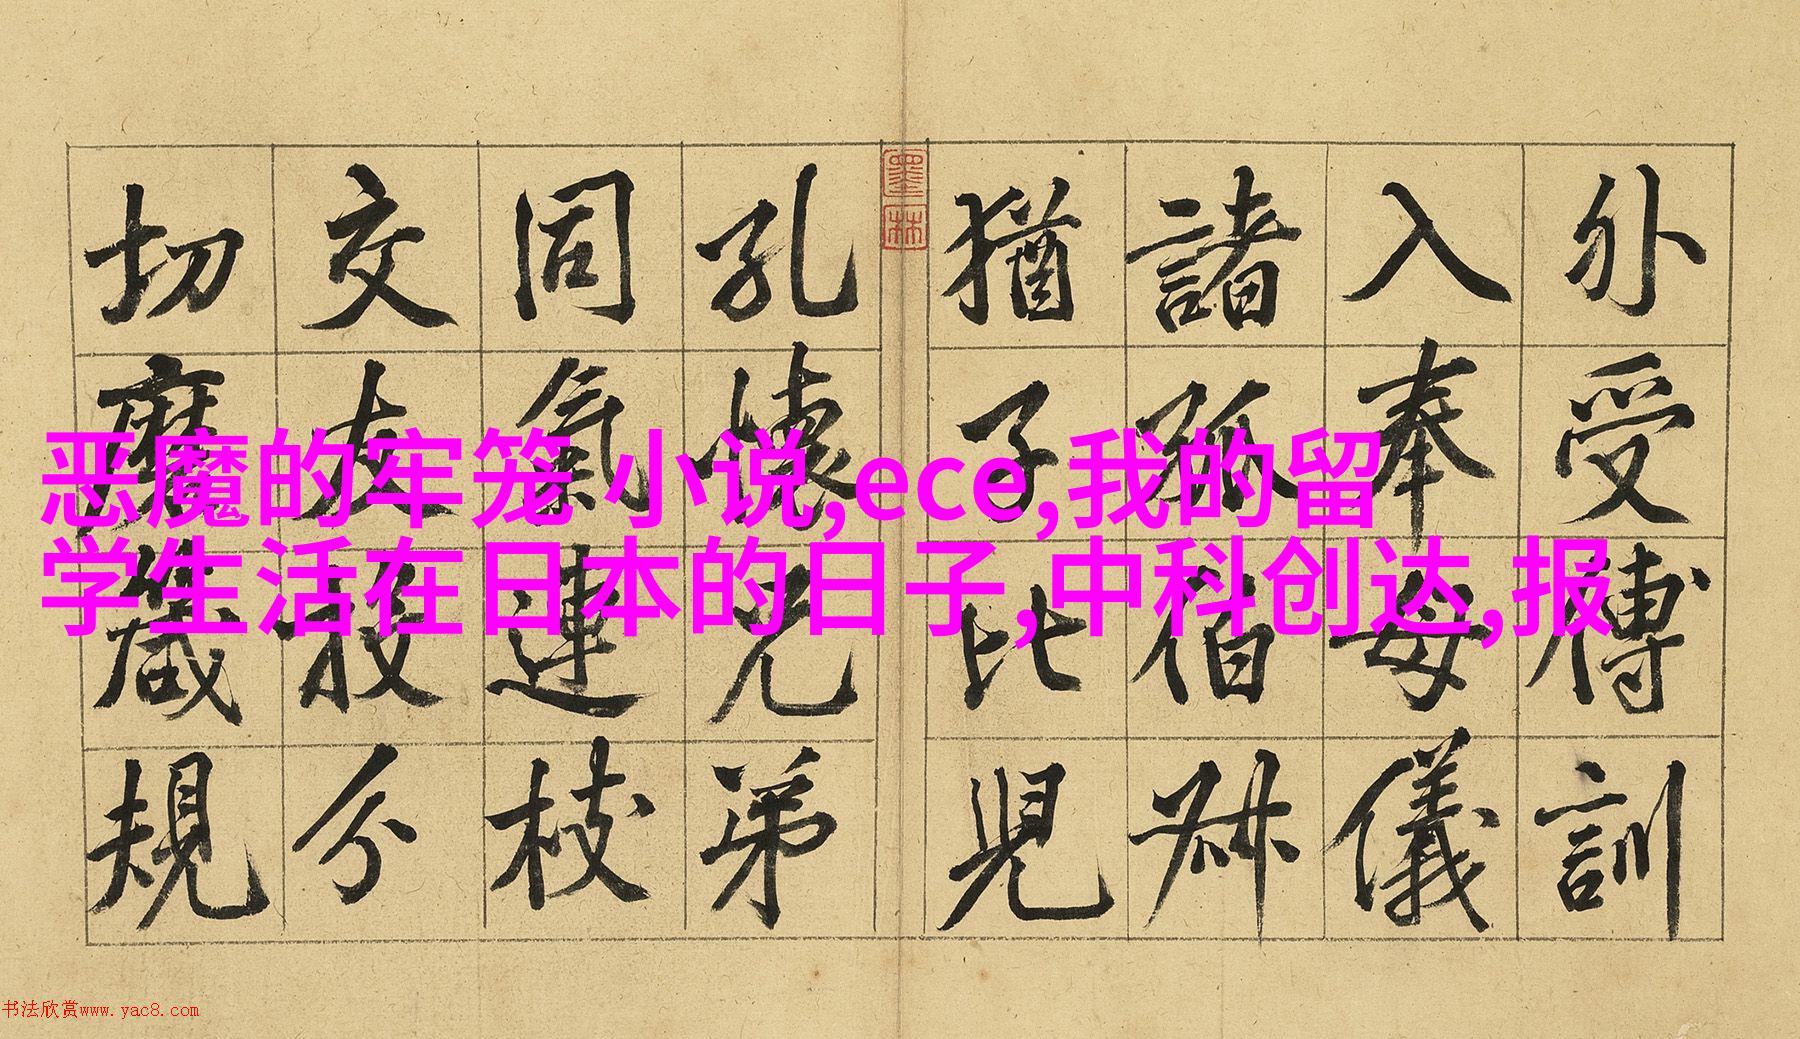 外受傅訓
入奉母儀
諸姑伯叔
猶子比兒
孔懷兄弟
同氣連枝
交友投分
切磨箴規
墨林
恶魔的牢笼 小说,ece,我的留
学生活在日本的日子,中科创达,报
书法欣赏www.yac8.com